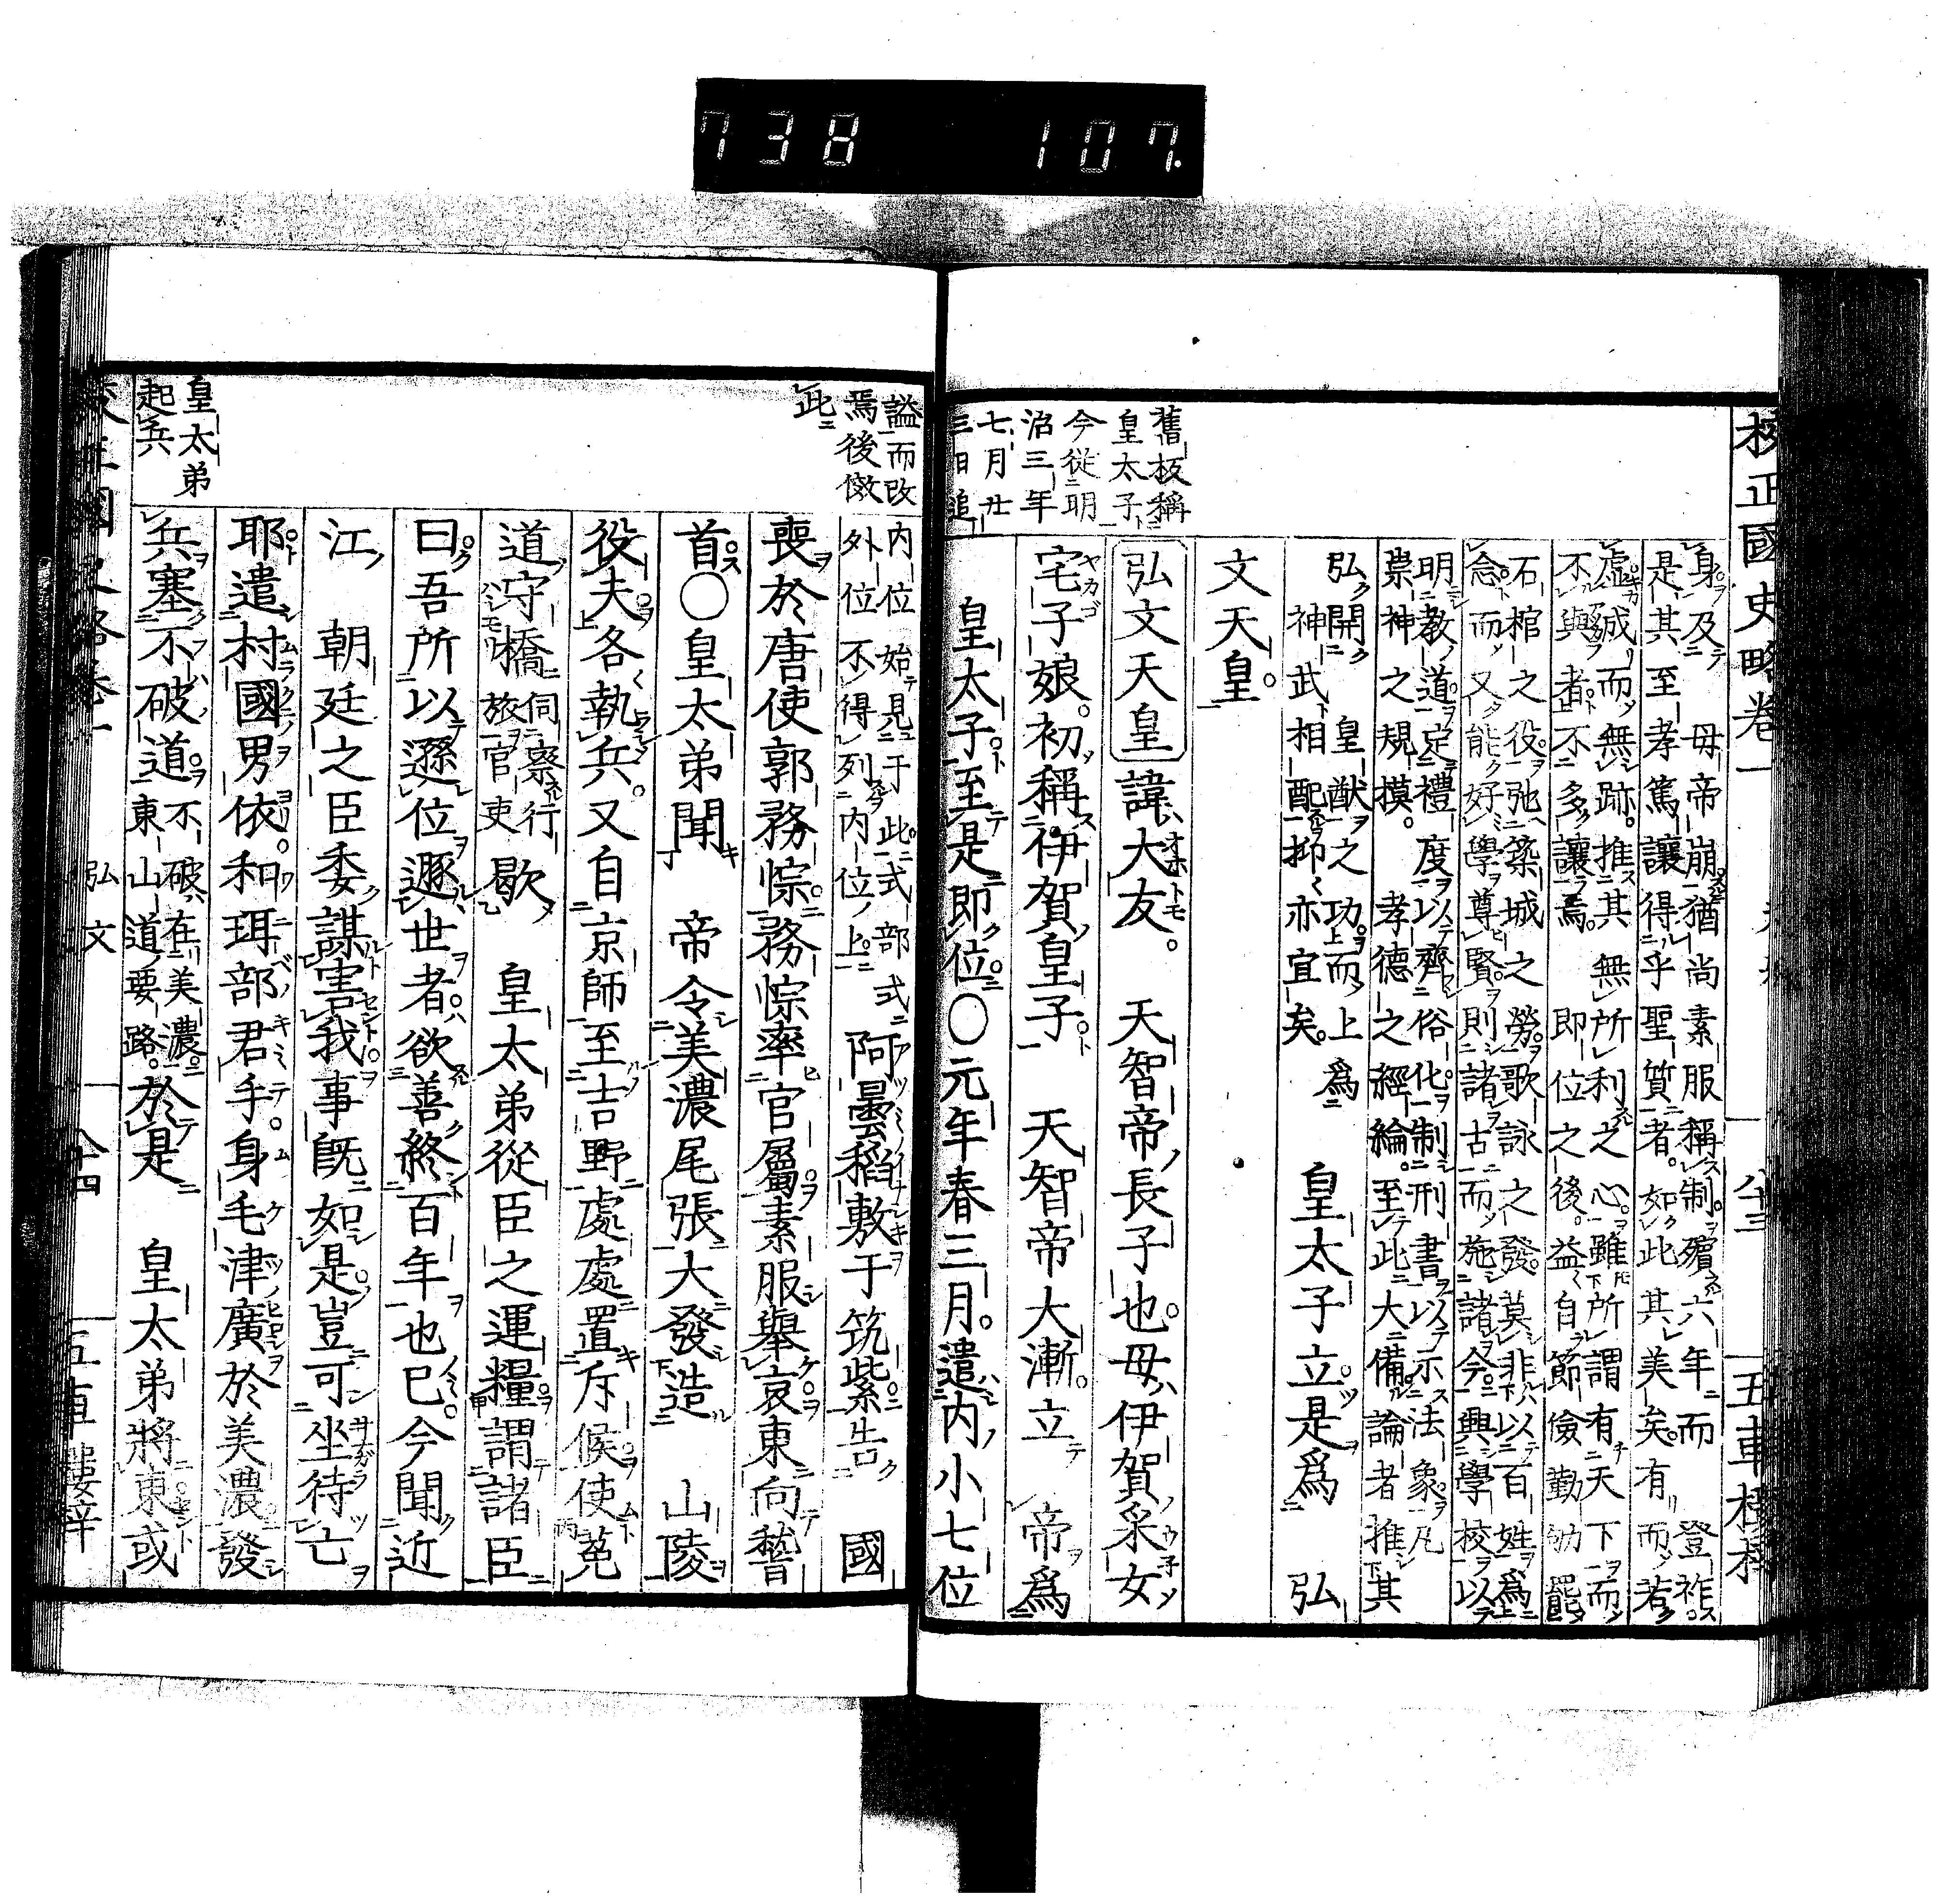 738 107.
校正國史略卷一
八十三
五車樓梓
舊板稱
皇太子
今從明
治三年
七月廿
三日追
身及 母帝崩猶尚素服稱制殯六年而 登祚
是其至孝篤讓得乎聖質者如此其美矣有而若
虛誠而無跡推其 無所利之心雖所謂有天下而
不與者不多讓焉 即位之後益自節儉勤劬罷
石棺之役弛築城之勞歌詠之發莫非以百姓爲
念而又能好學尊賢則諸古而施諸今興學校以
明教道定禮度以齊俗化制刑書以示法象凡
崇神之規模 孝德之經綸至此大備論者推其
弘開 皇猷之功而上爲
神武相配抑亦宜矣 皇太子立是爲 弘
文天皇
弘文天皇 諱大友オホトモ。 天智帝長子也母伊賀采女
宅子娘ヤカゴ。初稱伊賀皇子 天智帝大漸立 帝爲
皇太子至是即位〇元年春三月遣内小七位
謚而改
焉後傚
此
内位始見于此式部式
外位不得列内位上 阿曇稻敷于筑紫告 國
喪於唐使郭務悰務悰率官屬素服舉哀東向稽
首〇皇太弟聞 帝令美濃尾張大發造 山陵
役夫各執兵又自京師至吉野處處置斥候使菟
道守橋 伺察行
旅官吏 歇 皇太弟從臣之運糧謂諸臣
曰吾所以遜位遯世者欲善終百年也已今聞近
江 朝廷之臣委謀害我事既如是豈可坐待亡
耶遣村國男依和珥部君手身毛津廣於美濃發
兵塞不破道 不破在美濃
東山道要路 於是 皇太弟將東或
皇太弟
起兵
弘文
八十四
五車樓梓